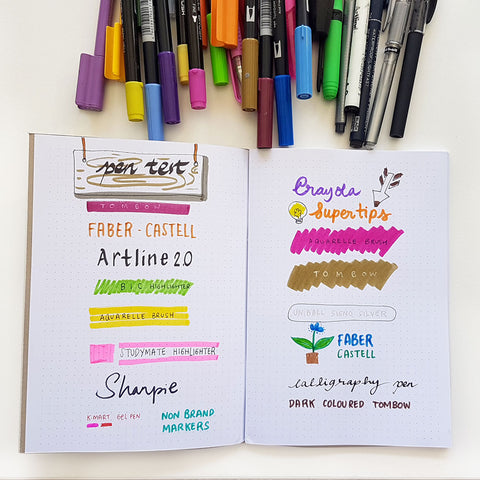 pen test
TOMBOW
FABER-CASTELL
Artline 2.0
BIC HIGHLIGHTER
AQUARELLE BRUSH
STUDYMATE HIGHLIGHTER
Sharpie
KMART GEL PEN
NON BRAND
MARKERS
Crayola
Supertips
AQUARELLE BRUSH
TOMBOW
UNIBALL SIGNO SILVER
FABER
CASTELL
calligraphy pen
DARK COLOURED TOMBOW